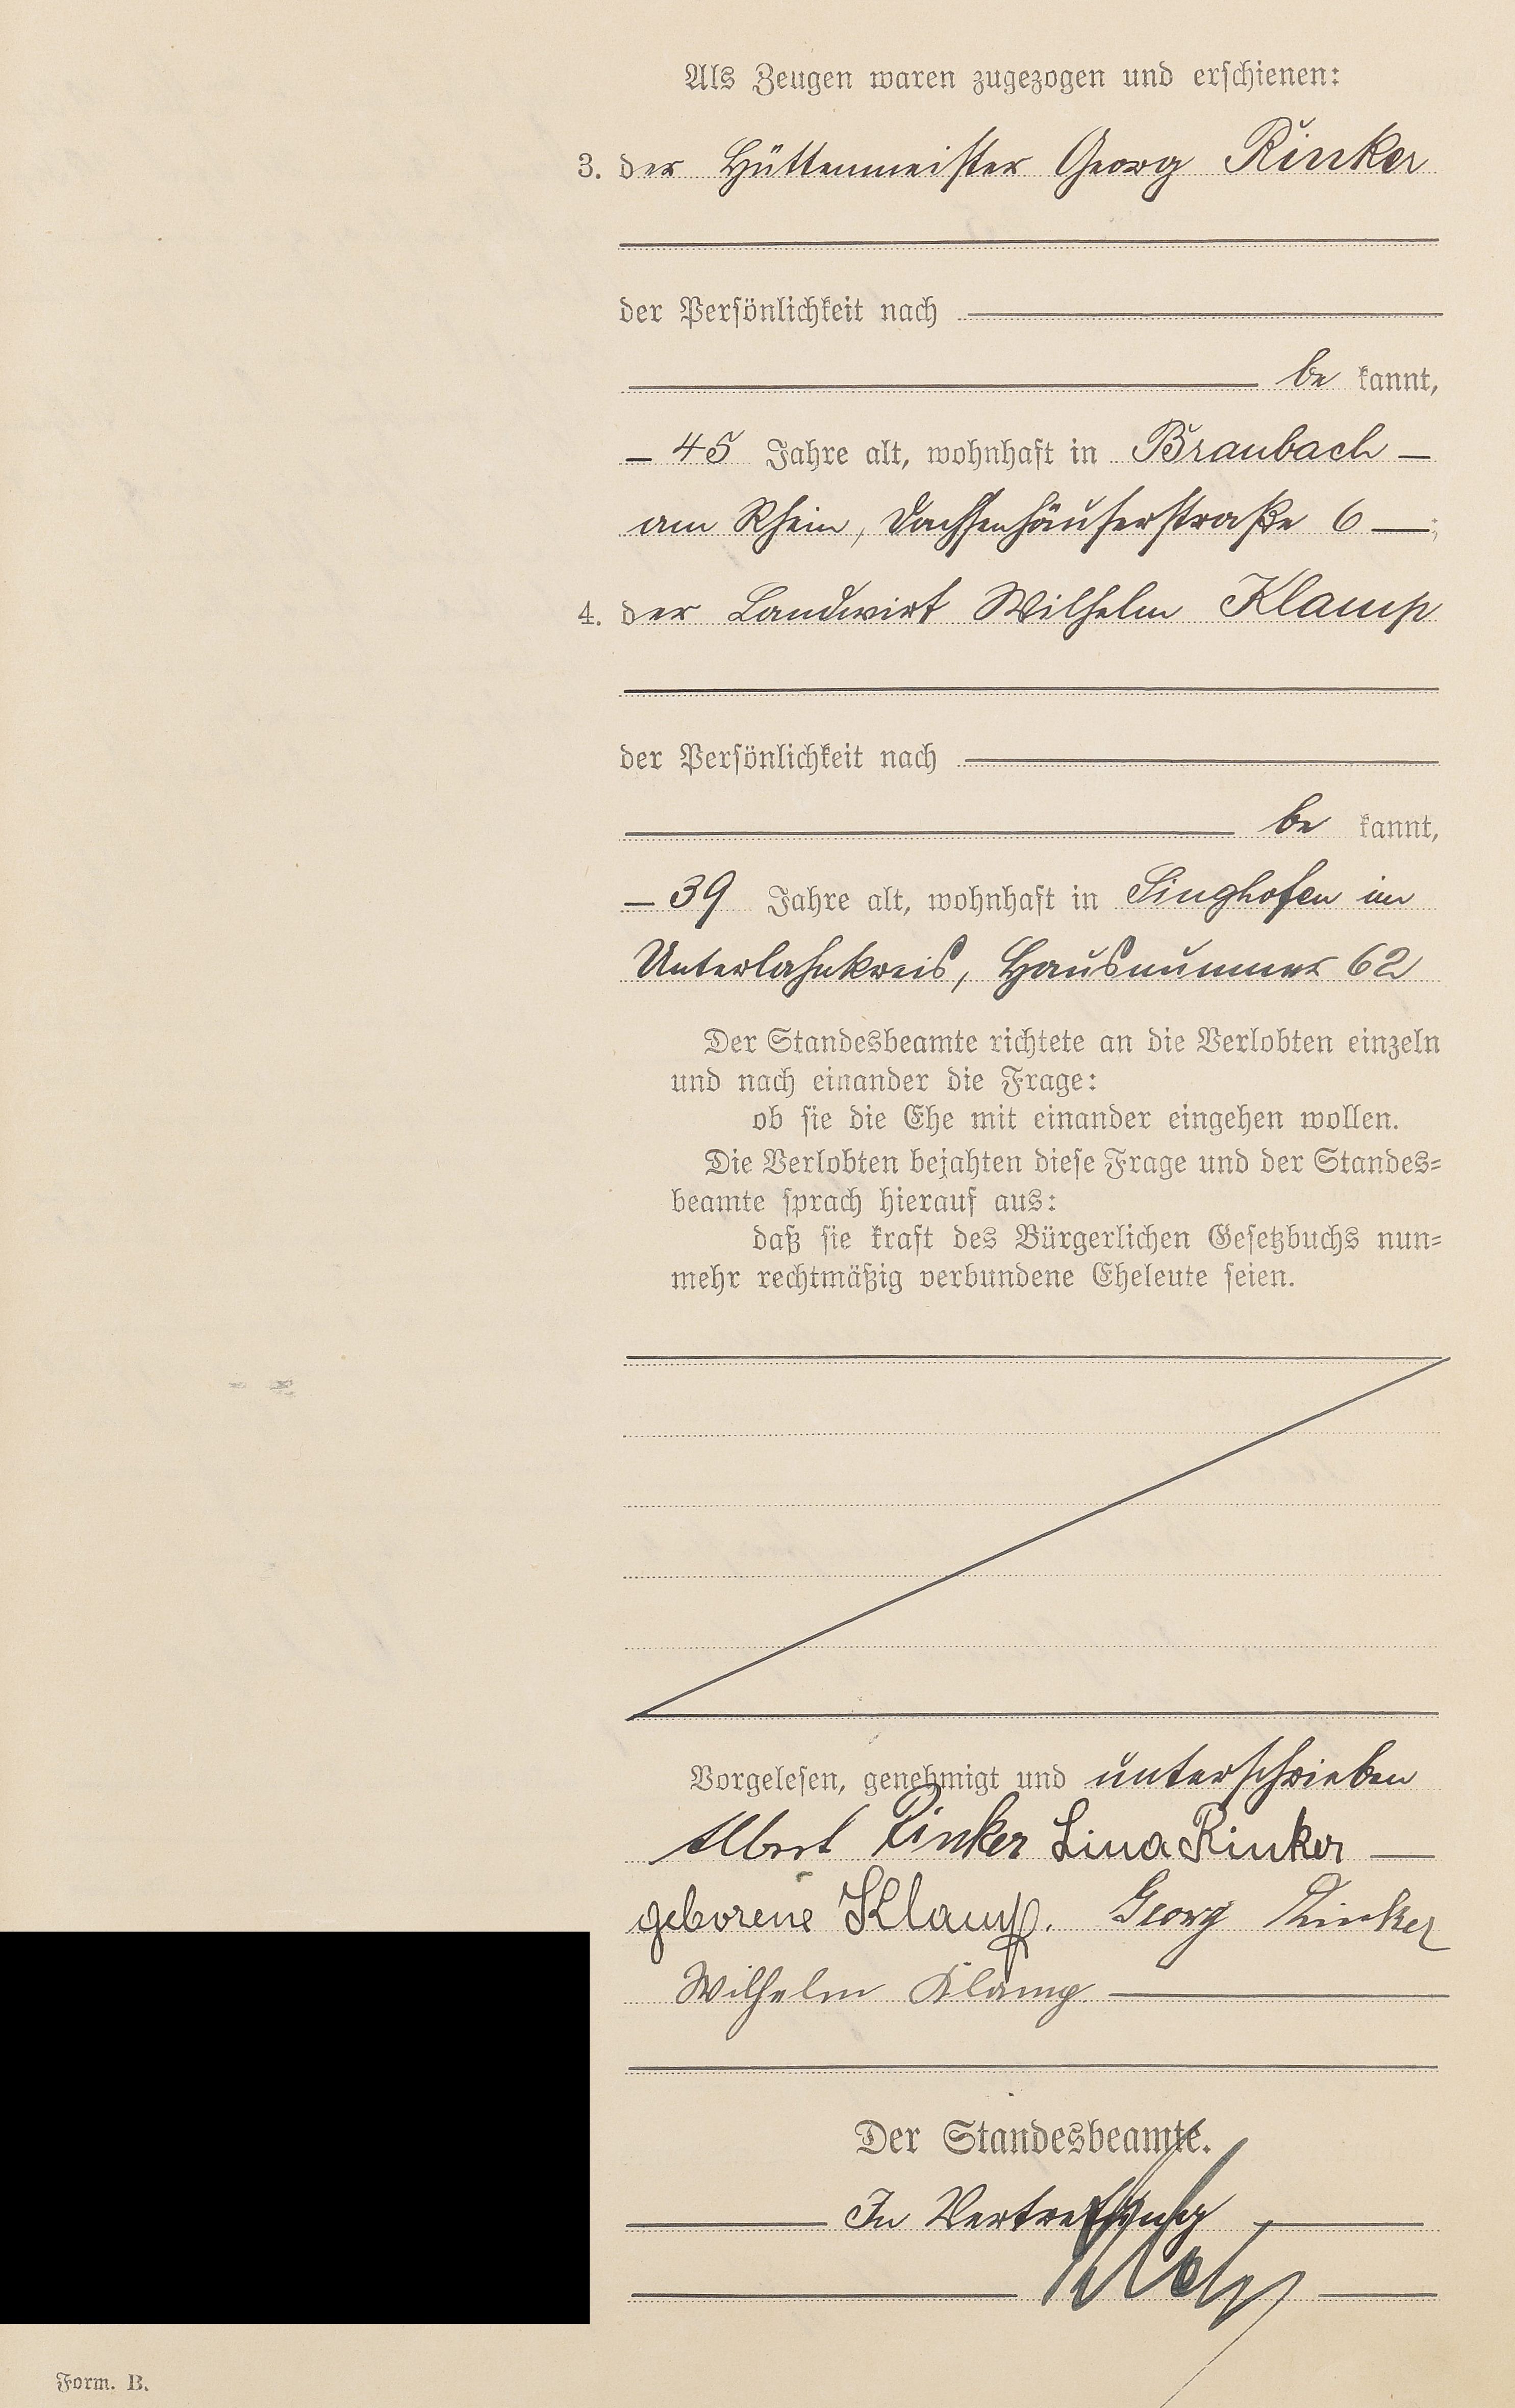 Als Zeugen waren zugezogen und erschienen:
3. der Hüttenmeister Georg Rinker
der Persönlichkeit nach
be kannt,
45 Jahre alt, wohnhaft in Braubach
am Rhein, Dachsenhäuserstraße 6 ;
4. der Landwirt Wilhelm Klamp
der Persönlichkeit nach
be kannt,
39 Jahre alt, wohnhaft in Singhofen im
Unterlahnkreis, Hausnummer 62
Der Standesbeamte richtete an die Verlobten einzeln
und nach einander die Frage:
ob sie die Ehe mit einander eingehen wollen.
Die Verlobten bejahten diese Frage und der Standes-
beamte sprach hierauf aus:
daß sie kraft des Bürgerlichen Gesetzbuchs nun-
mehr rechtmäßig verbundene Eheleute seien.
Vorgelesen, genehmigt und unterschrieben
Albert Rinker Lina Rinker
geborene Klamp. Georg Rinker
Wilhelm Klamp
Der Standesbeamte.
In Vertretung
Form. B.